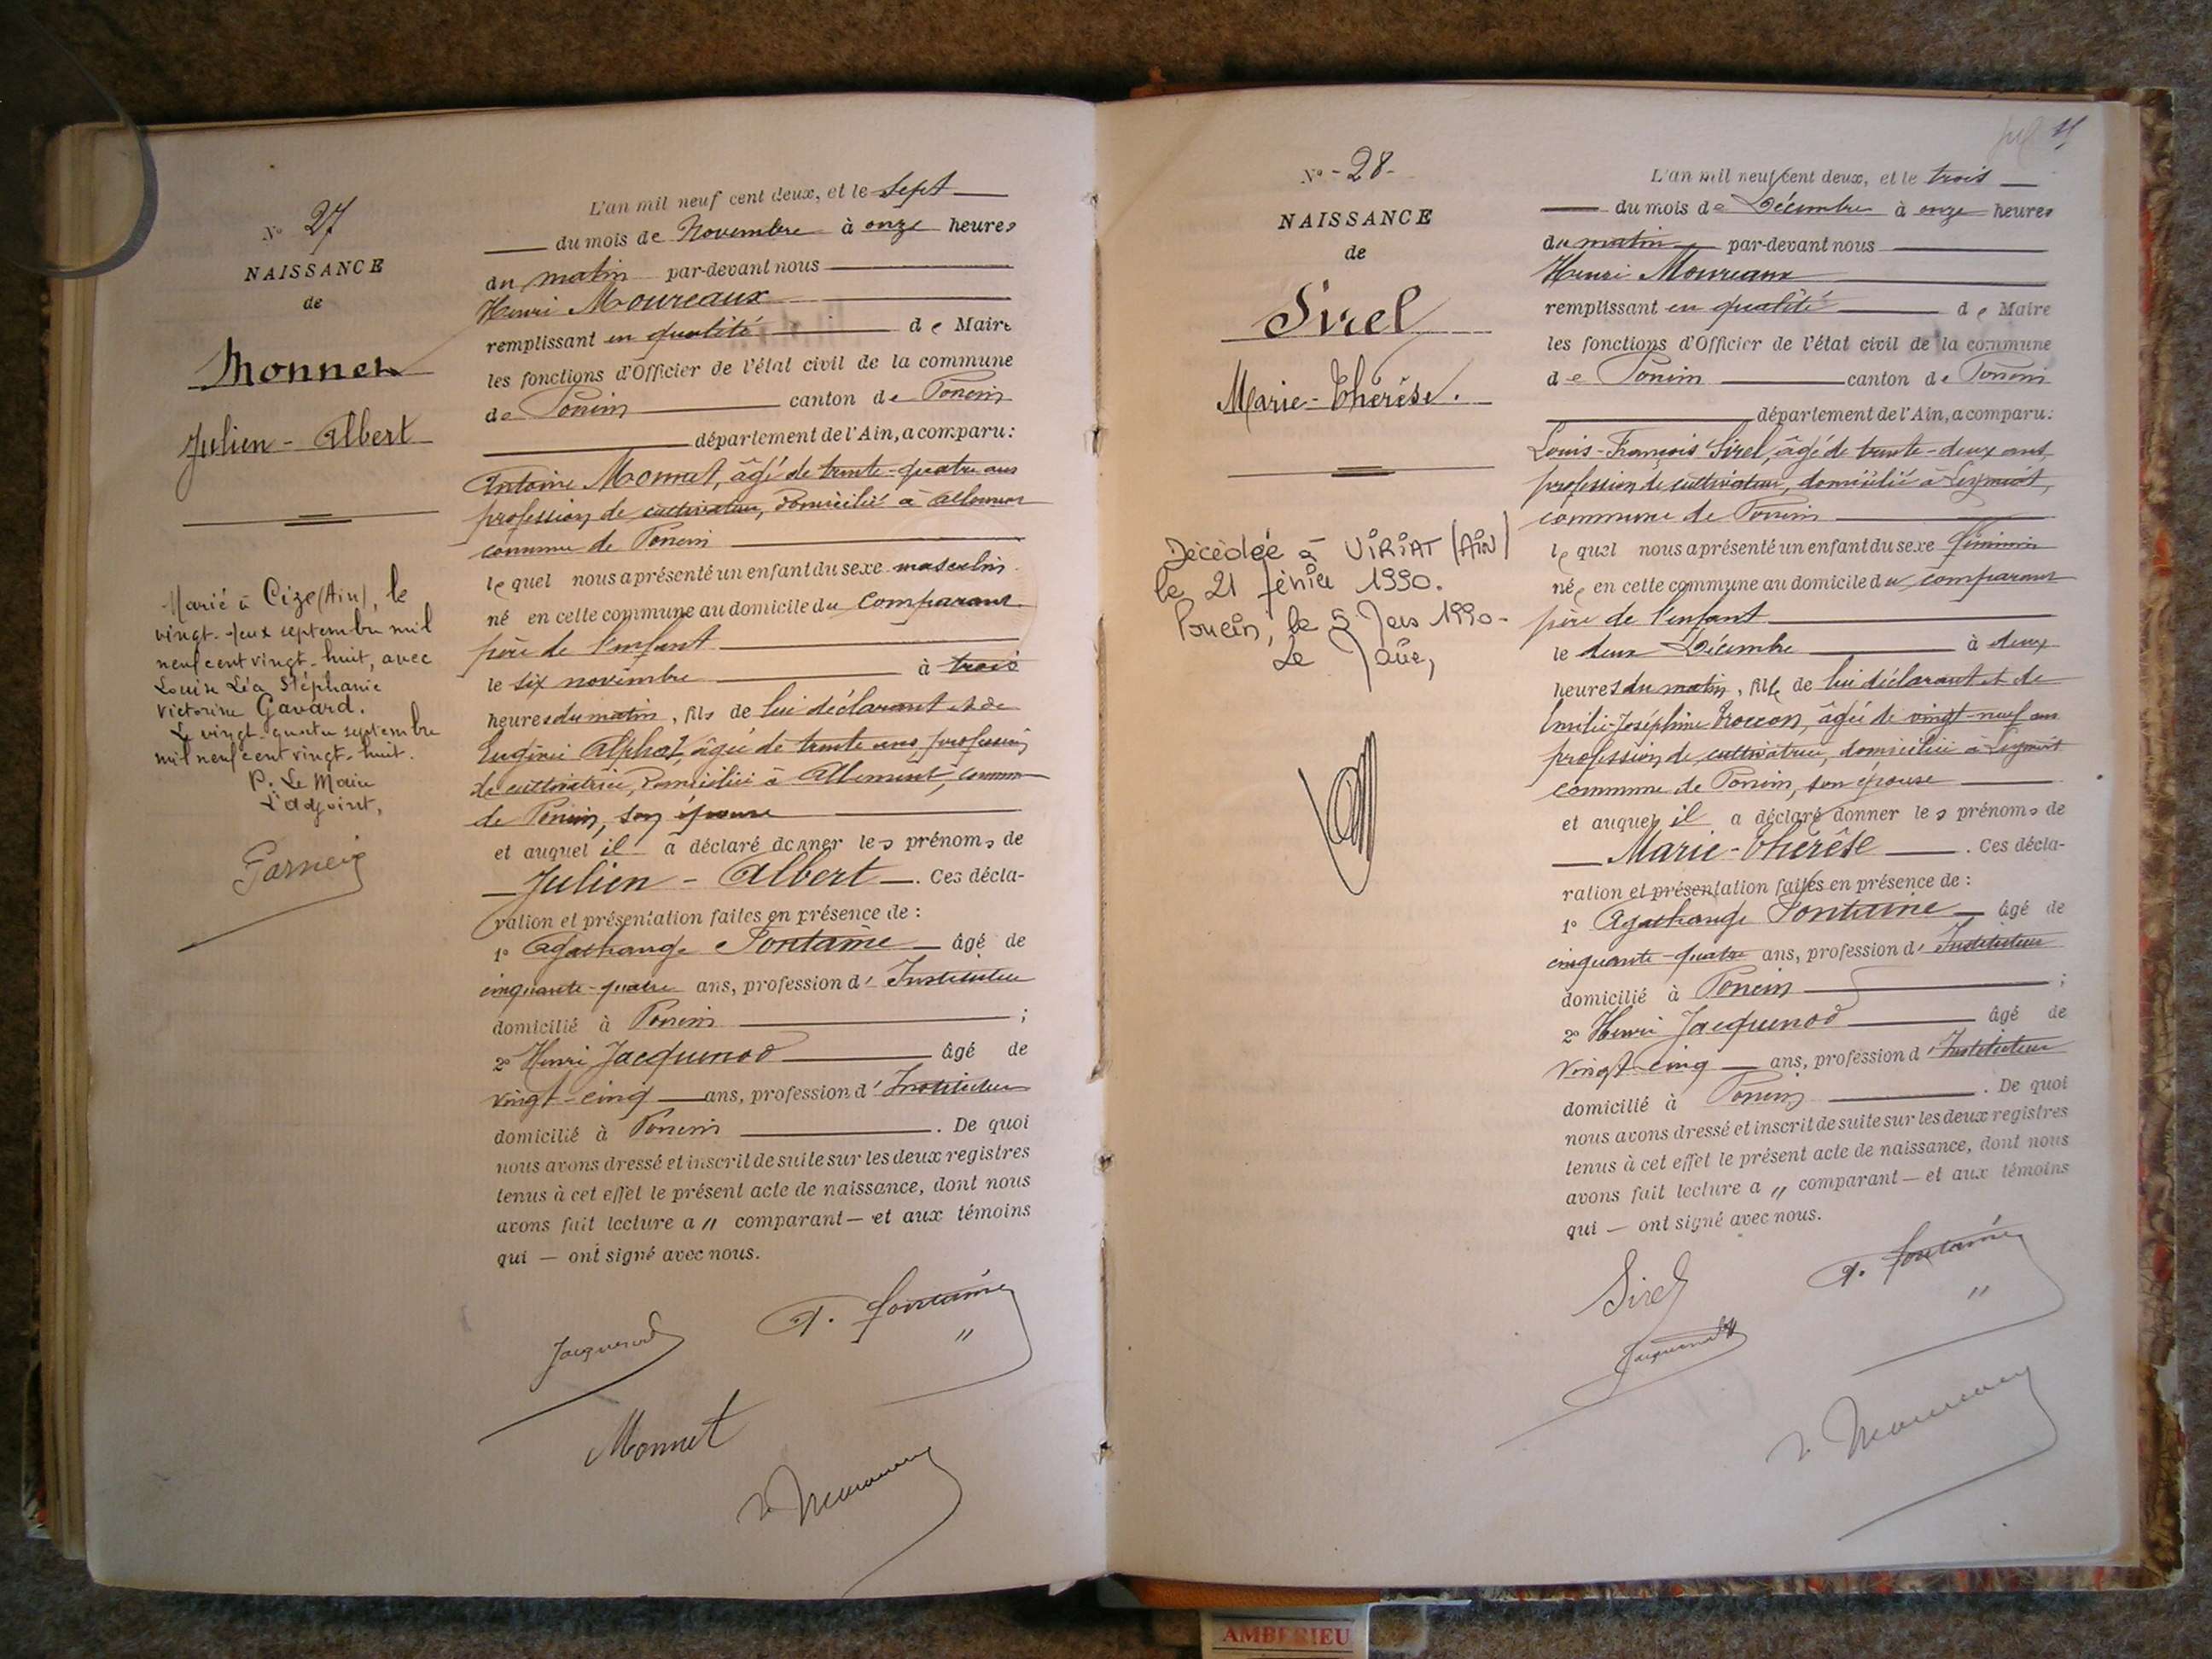 N° 27
NAISSANCE
de
Monnet
Julien - Albert
Marié à Cize (Ain), le
vingt-deux septembre mil
neuf cent vingt-huit, avec
Louise Léa Stéphanie
Victorine Gavard.
Le vingt-quatre septembre
mil neuf cent vingt-huit.
P. Le Maire
L'adjoint,
L'an mil neuf cent deux, et le sept
du mois de Novembre à onze heures
du matin par-devant nous
Henri Moureaux
remplissant en qualité de Maire
les fonctions d'Officier de l'état civil de la commune
de Poncin canton de Poncin
département de l'Ain, a comparu:
Antoine Monnet, âgé de trente-quatre ans
profession de cultivateur, domicilié à Allement
commune de Poncin
lequel nous a présenté un enfant du sexe masculin
né en cette commune au domicile du comparant
père de l'enfant
le six novembre à trois
heures du matin, fils de lui déclarant et de
Eugénie Alphat, âgée de trente ans profession
de cultivatrice, domiciliée à Allement, commune
de Poncin, son épouse
et auquel il a déclaré donner les prénoms de
Julien - Albert. Ces décla-
ration et présentation faites en présence de :
1° Agathange Fontaine âgé de
cinquante-quatre ans, profession d'Instituteur
domicilié à Poncin ;
2° Henri Jacquenod âgé de
vingt-cinq ans, profession d'Instituteur
domicilié à Poncin. De quoi
nous avons dressé et inscrit de suite sur les deux registres
tenus à cet effet le présent acte de naissance, dont nous
avons fait lecture a " comparant — et aux témoins
qui — ont signé avec nous.
Jacquenod A. Fontaine
Monnet
H. Moureaux
N° - 28 -
NAISSANCE
de
Sirel
Marie-Thérèse.
Décédée à VIRIAT (AIN)
le 21 février 1990.
Poncin, le 5 Mars 1990-
Le Maire,
11
L'an mil neuf cent deux, et le trois
du mois de Décembre à onze heures
du matin par-devant nous
Henri Moureaux
remplissant en qualité de Maire
les fonctions d'Officier de l'état civil de la commune
de Poncin canton de Poncin
département de l'Ain, a comparu:
Louis-François Sirel, âgé de trente-deux ans,
profession de cultivateur, domicilié à Leymiat,
commune de Poncin
lequel nous a présenté un enfant du sexe féminin
née en cette commune au domicile du comparant
père de l'enfant
le deux Décembre à deux
heures du matin, fille de lui déclarant et de
Emilie-Joséphine Troccon, âgée de vingt-neuf ans
profession de cultivatrice, domiciliée à Leymiat
commune de Poncin, son épouse
et auquel il a déclaré donner les prénoms de
Marie-Thérèse. Ces décla-
ration et présentation faites en présence de :
1° Agathange Fontaine âgé de
cinquante-quatre ans, profession d'Instituteur
domicilié à Poncin ;
2° Henri Jacquenod âgé de
vingt-cinq ans, profession d'Instituteur
domicilié à Poncin. De quoi
nous avons dressé et inscrit de suite sur les deux registres
tenus à cet effet le présent acte de naissance, dont nous
avons fait lecture a " comparant — et aux témoins
qui — ont signé avec nous.
Sirel A. Fontaine
Jacquenod
H. Moureaux
AMBERIEU